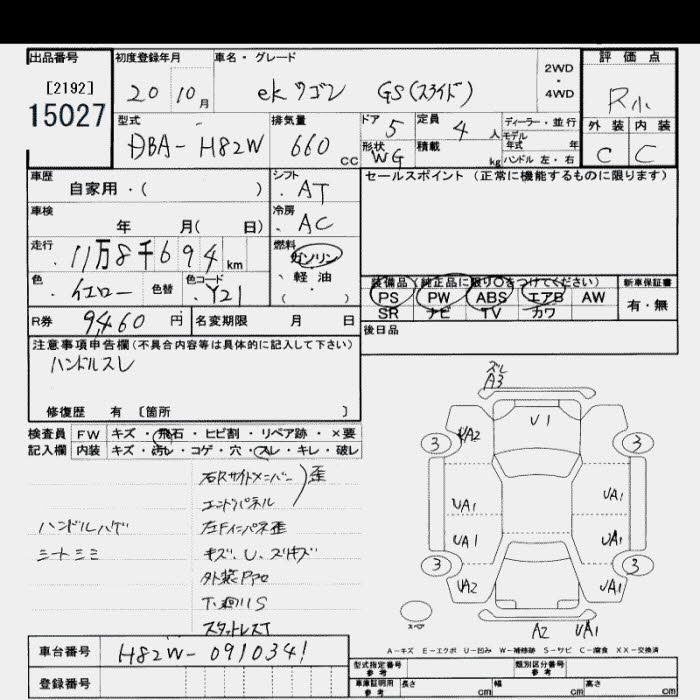 出品番号
[2192]
15027
初度登録年月
20 10月
車名・グレード
ekワゴン GS(スライド)
2WD
・
4WD
評価点
R小
外装 内装
C C
型式
DBA-H82W
排気量
660 CC
ドア 5
定員 4 人
形状 WG
積載 kg
ディーラー・並行
モデル年式 年
ハンドル 左・右
車歴
自家用・( )
シフト
AT
セールスポイント (正常に機能するものに限ります)
車検
年 月( 日)
冷房
AC
走行
11万8千694km
燃料
ガソリン
・軽油
・( )
色
イエロー
色替
色コード
Y21
装備品(純正品に限り○をつけてください)
PS PW ABS エアB AW
SR ナビ TV カワ
新車保証書
有・無
R券 9460円
名変期限 月 日
後日品
注意事項申告欄(不具合内容等は具体的に記入して下さい)
ハンドルスレ
修復歴 有 〔箇所 〕
検査員記入欄
FW キズ・飛石・ヒビ割・リペア跡・×要
内装 キズ・汚レ・コゲ・穴・スレ・キレ・破レ
石Rサイドメンバー
エンドパネル
歪
ハンドルハゲ
左Fインパネ歪
シートシミ
キズ、U、スリキズ
外装
下廻りS
スタッドレスT
ズレ
A3
U1
3 UA2 3
UA1 UA1
UA1 UA1
3 3
UA2 UA1
スペア
A2 UA1
A-キズ E-エクボ U-凹み W-補修跡 S-サビ C-腐食 XX-交換済
車台番号
H82W-0910341
登録番号
型式指定番号
参考
類別区分番号
参考
車庫証明用
参考
長さ cm
幅 cm
高さ cm